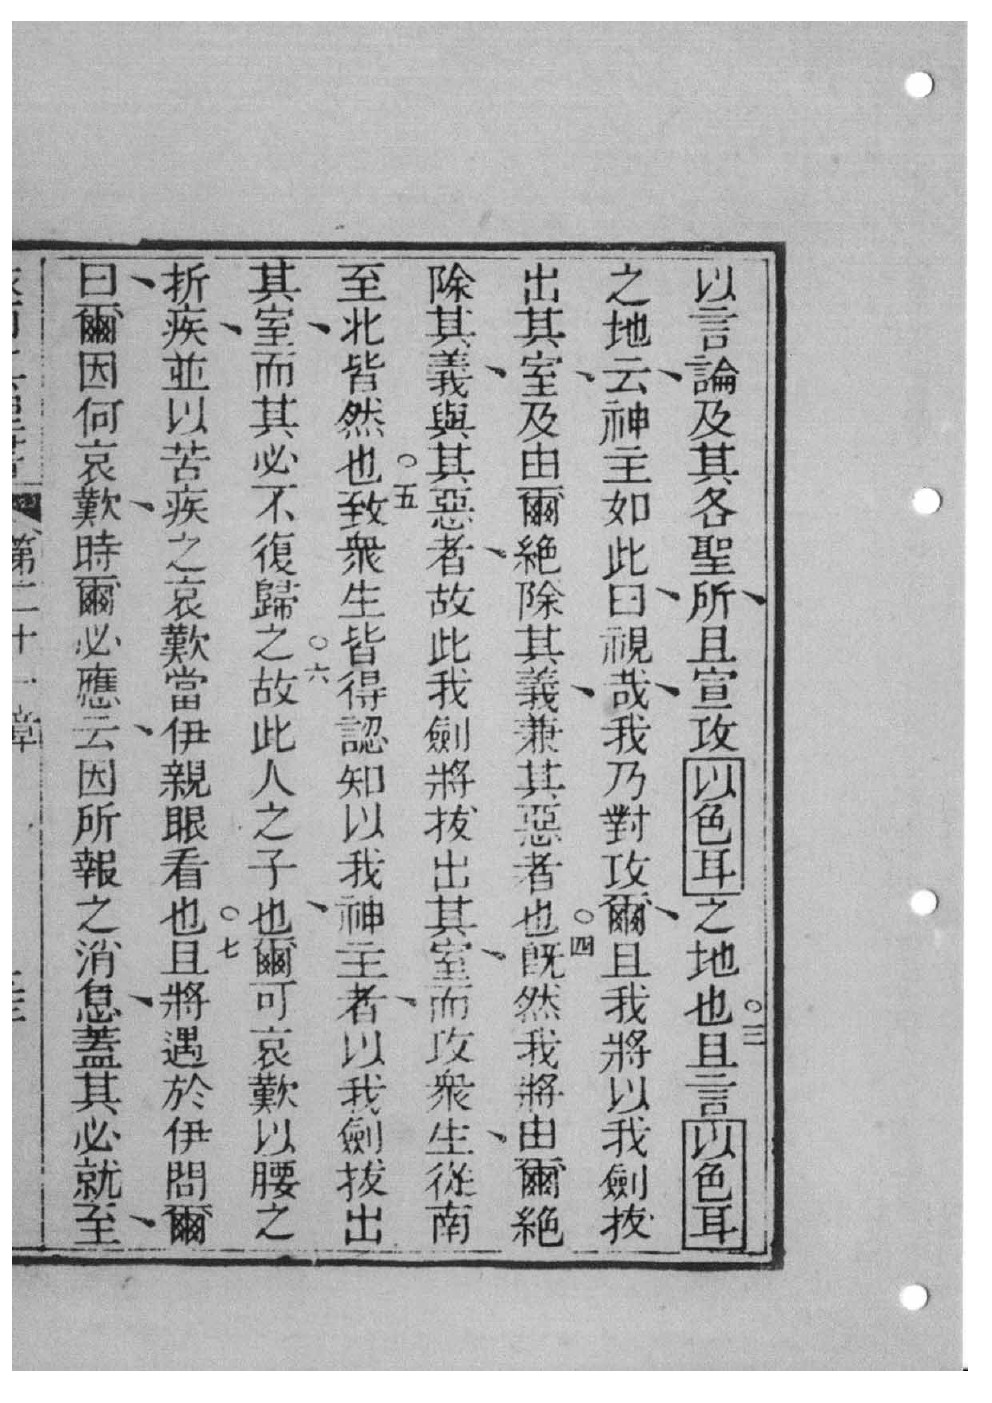 以言論及其各聖所、且宣攻以色耳之地也○三且言以色耳
之地云、神主如此曰、視哉、我乃對攻爾、且我將以我劍拔
出其室、及由爾絕除其義、兼其惡者也○四旣然我將由爾絕
除其義、與其惡者、故此我劍將拔出其室、而攻衆生、從南
至北皆然也○五致衆生皆得認知以我神主者、以我劍拔出
其室、而其必不復歸之○六故此人之子也、爾可哀歎以腰之
折疾、並以苦疾之哀歎當伊親眼看也○七且將遇於伊問爾
曰、爾因何哀歎、時爾必應云、因所報之消息、蓋其必就至、
第二十一章